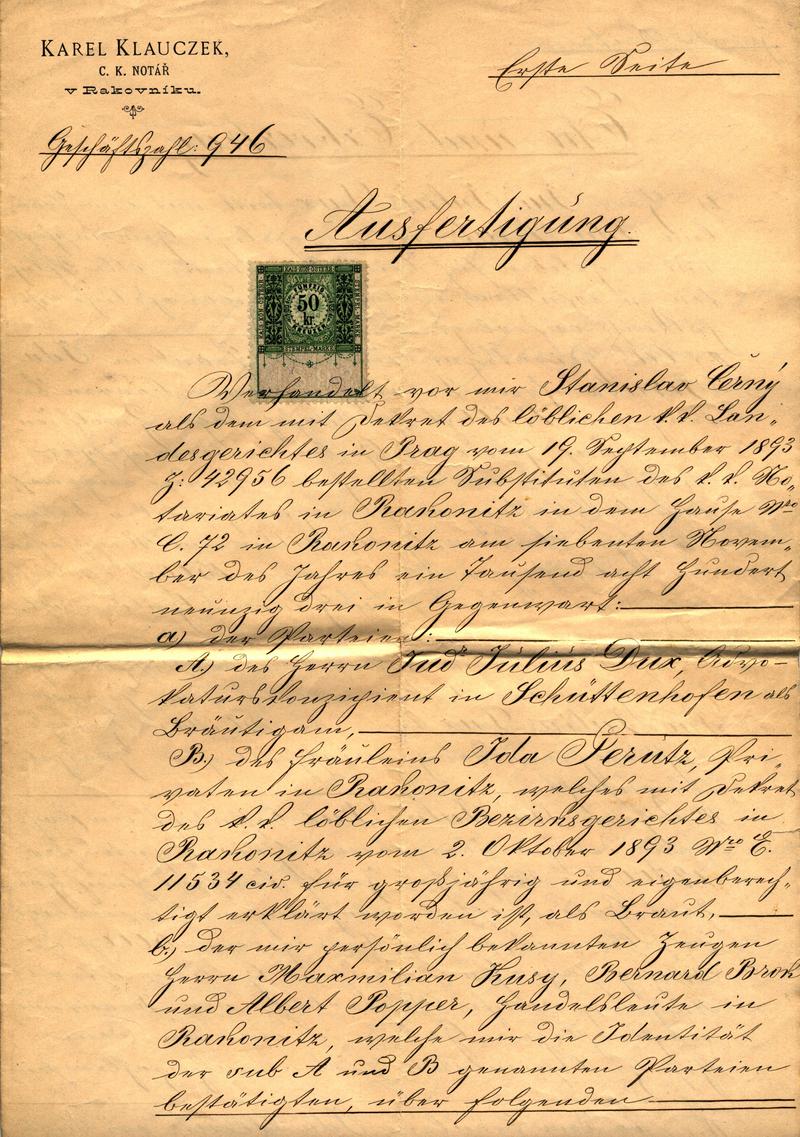 KAREL KLAUCZEK,
C. K. NOTÁŘ
v Rakovníku.
Erste Seite
Geschäftszahl: 946
Ausfertigung.
KAIS. KÖN. ÖSTERR.
FÜNFZIG
50
kr.
KREUZER
STEMPEL-MARKE
Verhandelt vor mir Stanislav Černý
als dem mit Dekret des löblichen k. k. Lan-
desgerichtes in Prag vom 19. September 1893
Z: 42956 bestellten Substituten des k. k. No-
tariates in Rakonitz in dem Hause Nro
C. 72 in Rakonitz am siebenten Novem-
ber des Jahres ein Tausend acht Hundert
neunzig drei in Gegenwart:
a) der Parteien:
A.) des Herrn Judr Julius Dux, Advo-
katurskonzipient in Schüttenhofen als
Bräutigam,
B.) des Fräuleins Ida Perutz, Pri-
vaten in Rakonitz, welches mit Dekret
des k. k. löblichen Bezirksgerichtes in
Rakonitz vom 2. Oktober 1893 Nro E.
11534 civ. für großjährig und eigenberech-
tigt erklärt worden ist, als Braut,
b.) der mir persönlich bekannten Zeugen
Herrn Maxmilian Kusy, Bernard Brok
und Albert Popper, Handelsleute in
Rakonitz, welche mir die Identität
der sub A und B genannten Parteien
bestätigten, über folgenden